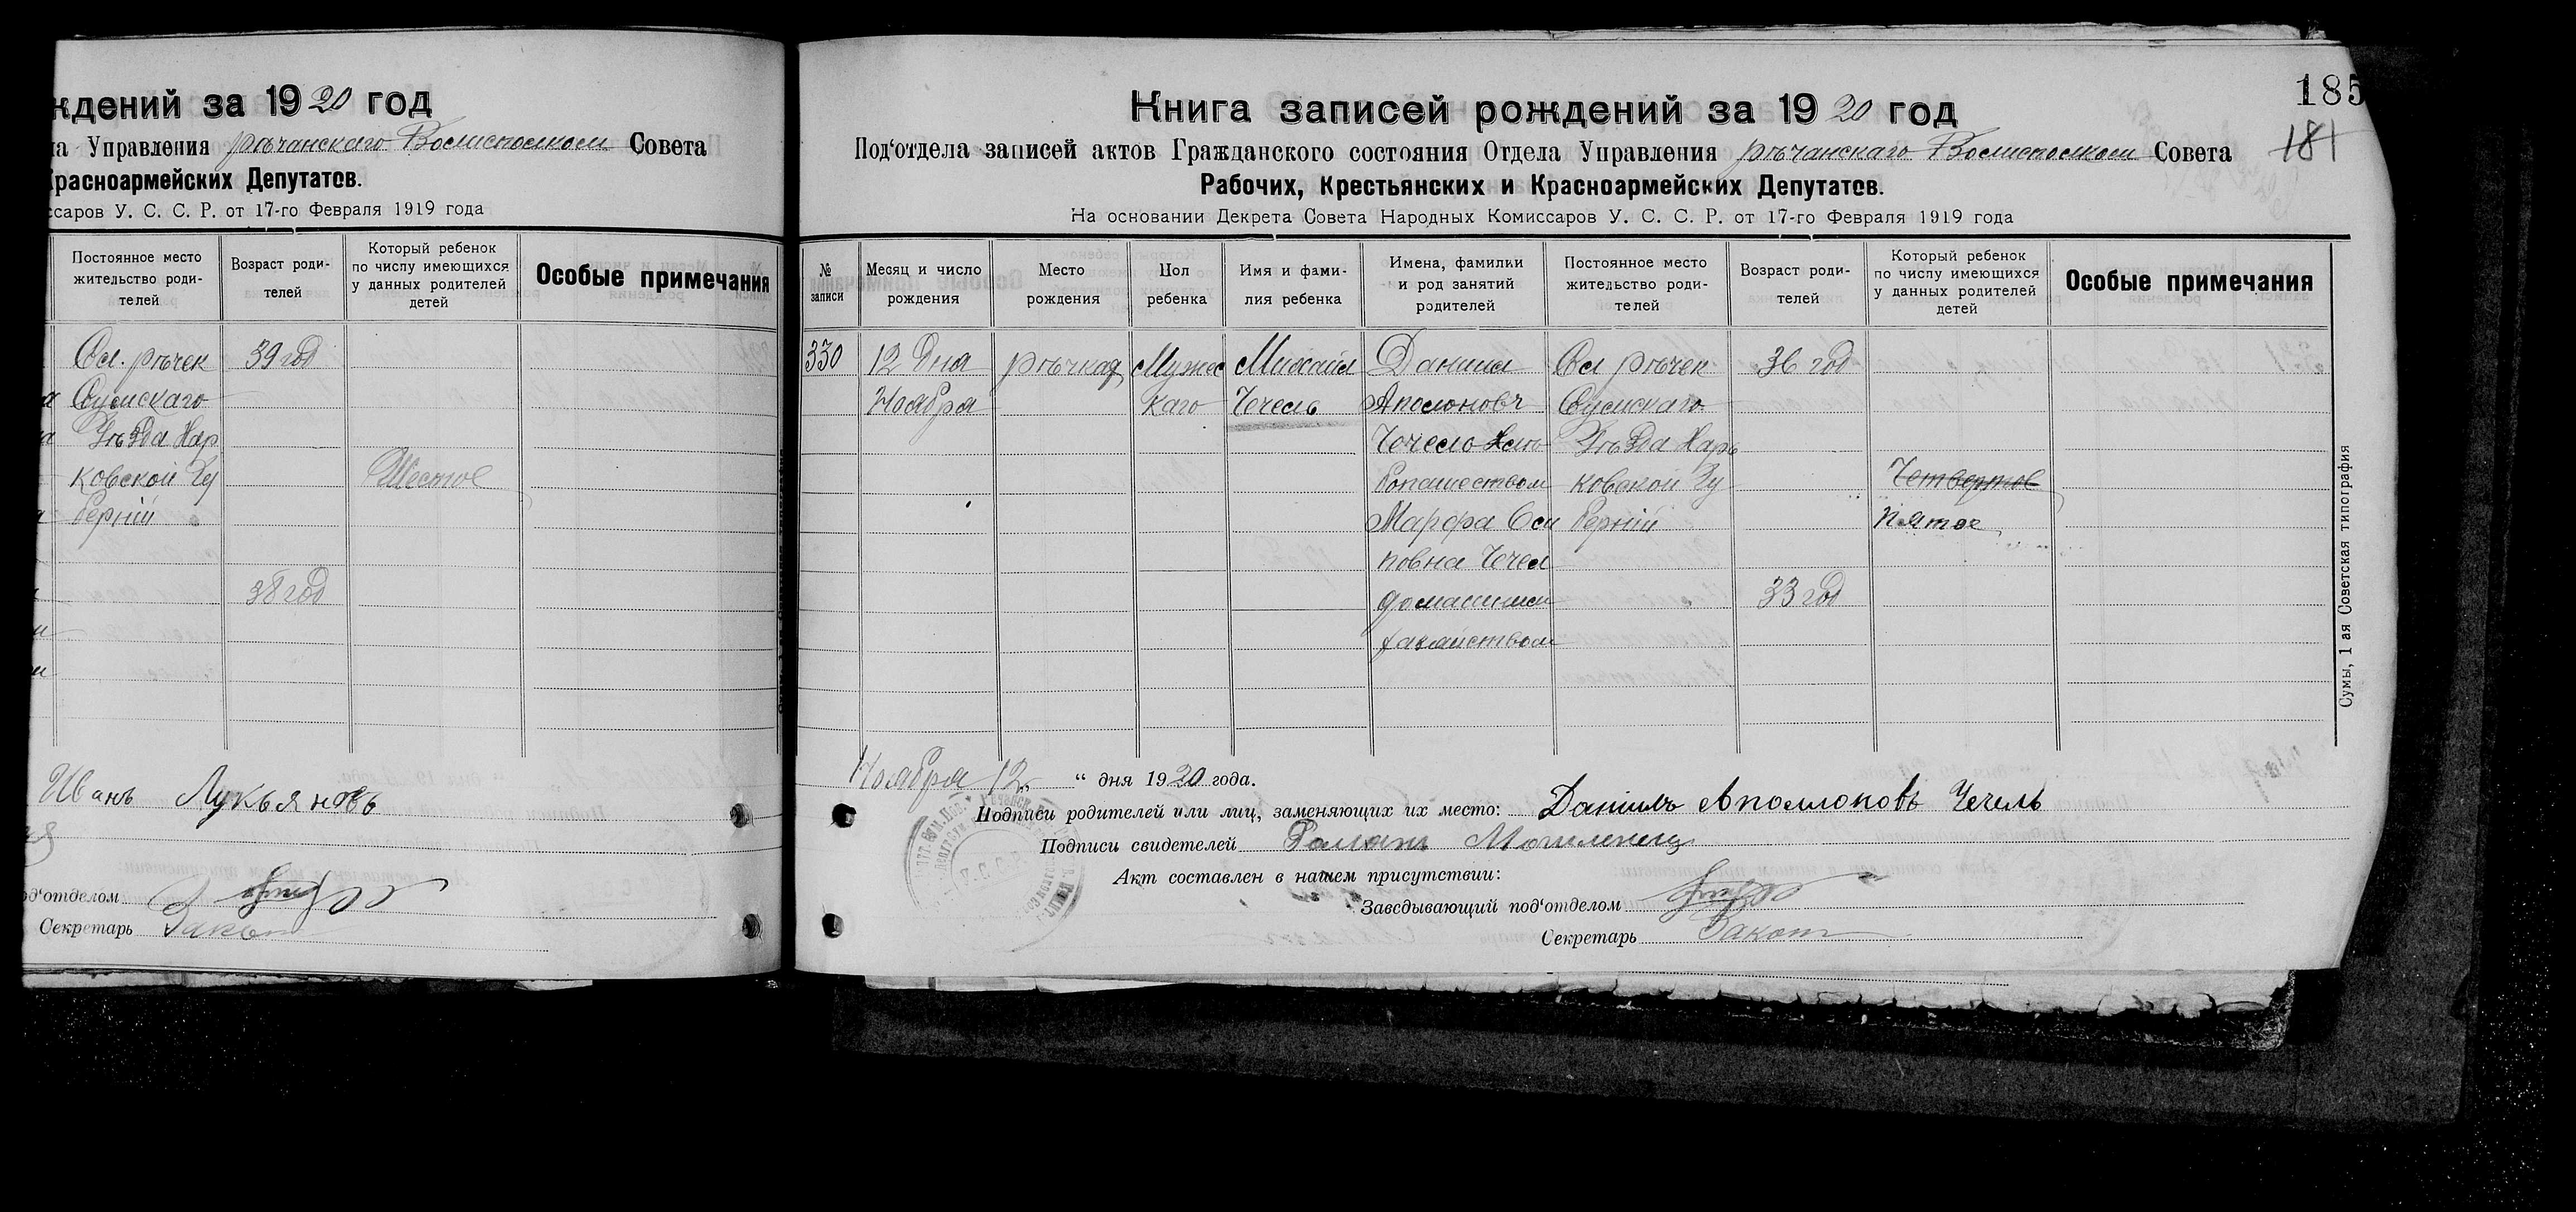 ждений за 1920 год
на Управления рѣчанскаго Волисполком Совета
Красноармейских Депутатов.
ссаров У. С. С. Р. от 17-го Февраля 1919 года
Постоянное место жительство родителей
Возраст родителей
Который ребенок по числу имеющихся у данных родителей детей
Особые примечания
Сл. рѣчек 39 год
Сумскаго
Уѣзда Хар
ковской Гу Шестое
берніи
38 год
Иванъ Лукьяновъ
од‘отделом
Секретарь Закот
185
181
Книга записей рождений за 1920 год
Под‘отдела записей актов Гражданского состояния Отдела Управления рѣчанскаго Волисполком Совета
Рабочих, Крестьянских и Красноармейских Депутатов.
На основании Декрета Совета Народных Комиссаров У. С. С. Р. от 17-го Февраля 1919 года
№ записи
Месяц и число рождения
Место рождения
Пол ребенка
Имя и фамилия ребенка
Имена, фамилии и род занятий родителей
Постоянное место жительство родителей
Возраст родителей
Который ребенок по числу имеющихся у данных родителей детей
Особые примечания
330 12 Дня рѣчках Мужес Михаил Данил Сл рѣчек 36 год
Ноября каго Чечель Аполоновъ Сумскаго
Уѣзда Харь
бопашеством ковской Гу Четвертое
Марфа Оси берніи пятое
повна Чечел
домашним 33 год
хазяйством
Сумы, 1 ая Советская типография
Ноября 12 “ дня 1920 года.
Подписи родителей или лиц, заменяющих их место: Данилъ Аполлоновъ Чечель
Подписи свидетелей Роман
Акт составлен в нашем присутствии:
Заведывающий под‘отделом
Секретарь Закот